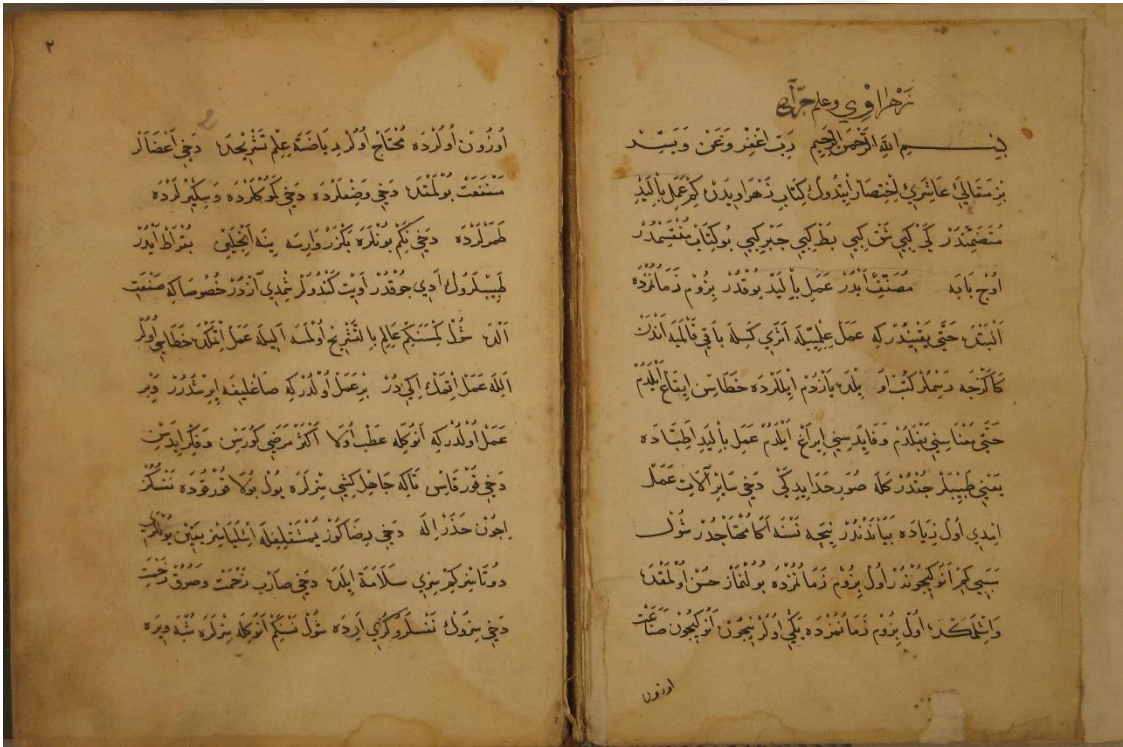 زهراوي وعلم جراح
بسم الله الرحمن الرحيم رب اغفر وعن ويسر
بز مقالۀ عاشري اختصار ايتدوك كتاب زهراويدن كم عمل باليد
متضمندر كي كبي شق كبي بط كبي جبر كبي بو كتاب منقسمدر
اوج بابه مصنف ايدر عمل باليد يوقدر بزوم زمانمزده
البته حتى يقيندركه عمل علميله اثري كسله باقي قالميه اندن
رسملر كتب يازدم ايللرده خطاسن ايقاع ايلدم
حتى معناسني ايراغ ايلدم عمل باليد اطباده
يعني طبيبلر كله صور حدايدكي دخي ساير آلات عمل
ايمدي اول زياده نيجه نسنه اكا محتاجدر شول
سببي كم انوكيجوندر اول بزوم زمانمزده بولنماز حسن اولمقده
واشلمكده اول بزوم زمانمزده يكي اولر نيجون انوكيجون صناعت
اوزون
٢
2
اوزون اولرده محتاج اولر رياضة علم تشريحده دخي اعضالر
منفعت بولمقده دخي وضعلرده دخي كوكلرده وسكيرلرده
طمرلرده دخي نكم بونلره بكزر وارسه ينه انجلين بقراط ايدر
طبيبلروك ادي جوقدر اويت كندولر شمدي آزدر خصوصا كه صنعت
الده شول كمسنكم عالم بالتشريح اولمسه انيله عمل اتمكده خطايي اولر
الله عمل اتمك ايكي در بر عمل اولدركه صاغلغنه ايرشدرر وبر
عمل اولدركه انوكله عطب اولا اكثر مرضي كورسن وفكر ايدرسن
دخي قورقاسن تاكه جاهل كشي سزلره يول بولا قورقوده نفسكز
اجون حذر اله دخي رضا كوزتمكلغله
سزي سلامة ايلده دخي زحمت وصوك زحمت
دخي سزوك نفسلروكزي ارده شول نسنكم انوكله سزلره شبه ويره